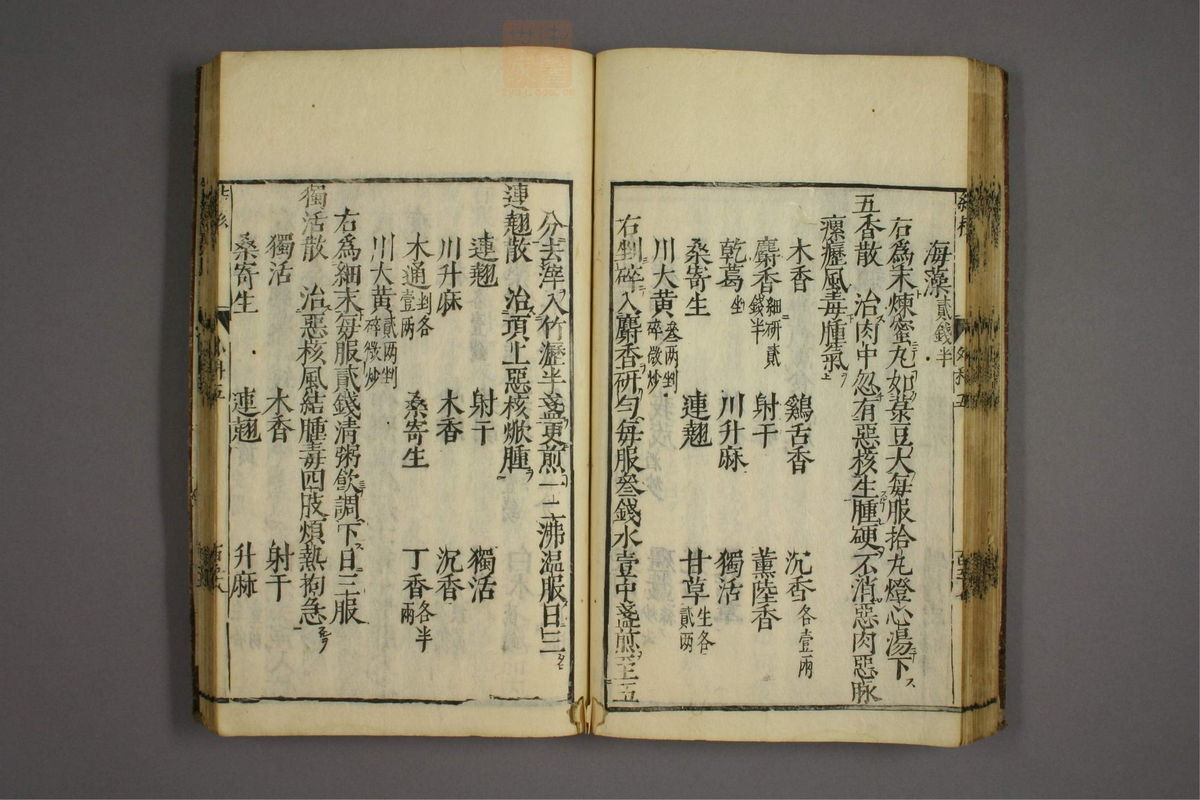 海藻貳錢半
右爲末煉蜜丸如菉豆大每服拾丸燈心湯下
五香散　治肉中忽有惡核生腫硬不消惡肉惡脉
瘰癧風毒腫氣
木香　鷄舌香　沉香各壹兩
麝香細研貳錢半　射干　薰陸香
乾葛　川升麻　獨活
桑寄生　連翹　甘草生各貳兩
川大黃叁兩剉碎微炒
右剉碎入麝香研勻每服叁錢水壹中盞煎至五
分去滓入竹瀝半盞更煎一二沸温服日三
連翹散　治項上惡核焮腫
連翹　射干　獨活
川升麻　木香　沉香
木通剉各壹兩　桑寄生　丁香各半兩
川大黃貳兩剉碎微炒
右爲細末每服貳錢清粥飲調下日三服
獨活散　治惡核風結腫毒四肢煩熱拘急
獨活　木香　射干
桑寄生　連翹　升麻